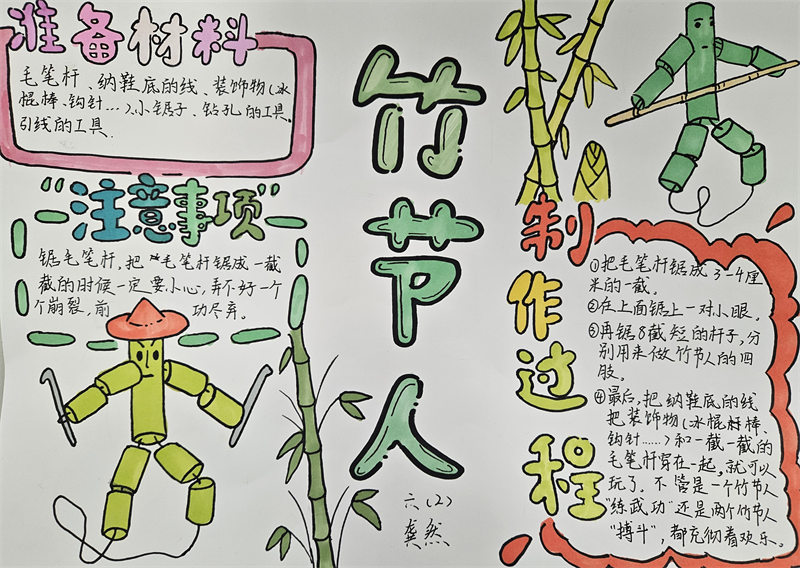 准备材料
毛笔杆、纳鞋底的线、装饰物(冰
棍棒、钩针…)、小锯子、钻孔的工具、
引线的工具.
"注意事项"
锯毛笔杆,把毛笔杆锯成一截
截的时候一定要小心,弄不好一个
个崩裂,前功尽弃。
竹节人
六(2)
龚然
制作过程
①把毛笔杆锯成3-4厘
米的一截。
②在上面锯上一对小眼。
③再锯8截短的杆子,分
别用来做竹节人的四
肢。
④最后,把纳鞋底的线
把装饰物(冰棍棒、
钩针……)和一截一截的
毛笔杆穿在一起,就可以
玩了.不管是一个竹节人
"练武功"还是两个竹节人
"搏斗",都充彻着欢乐。